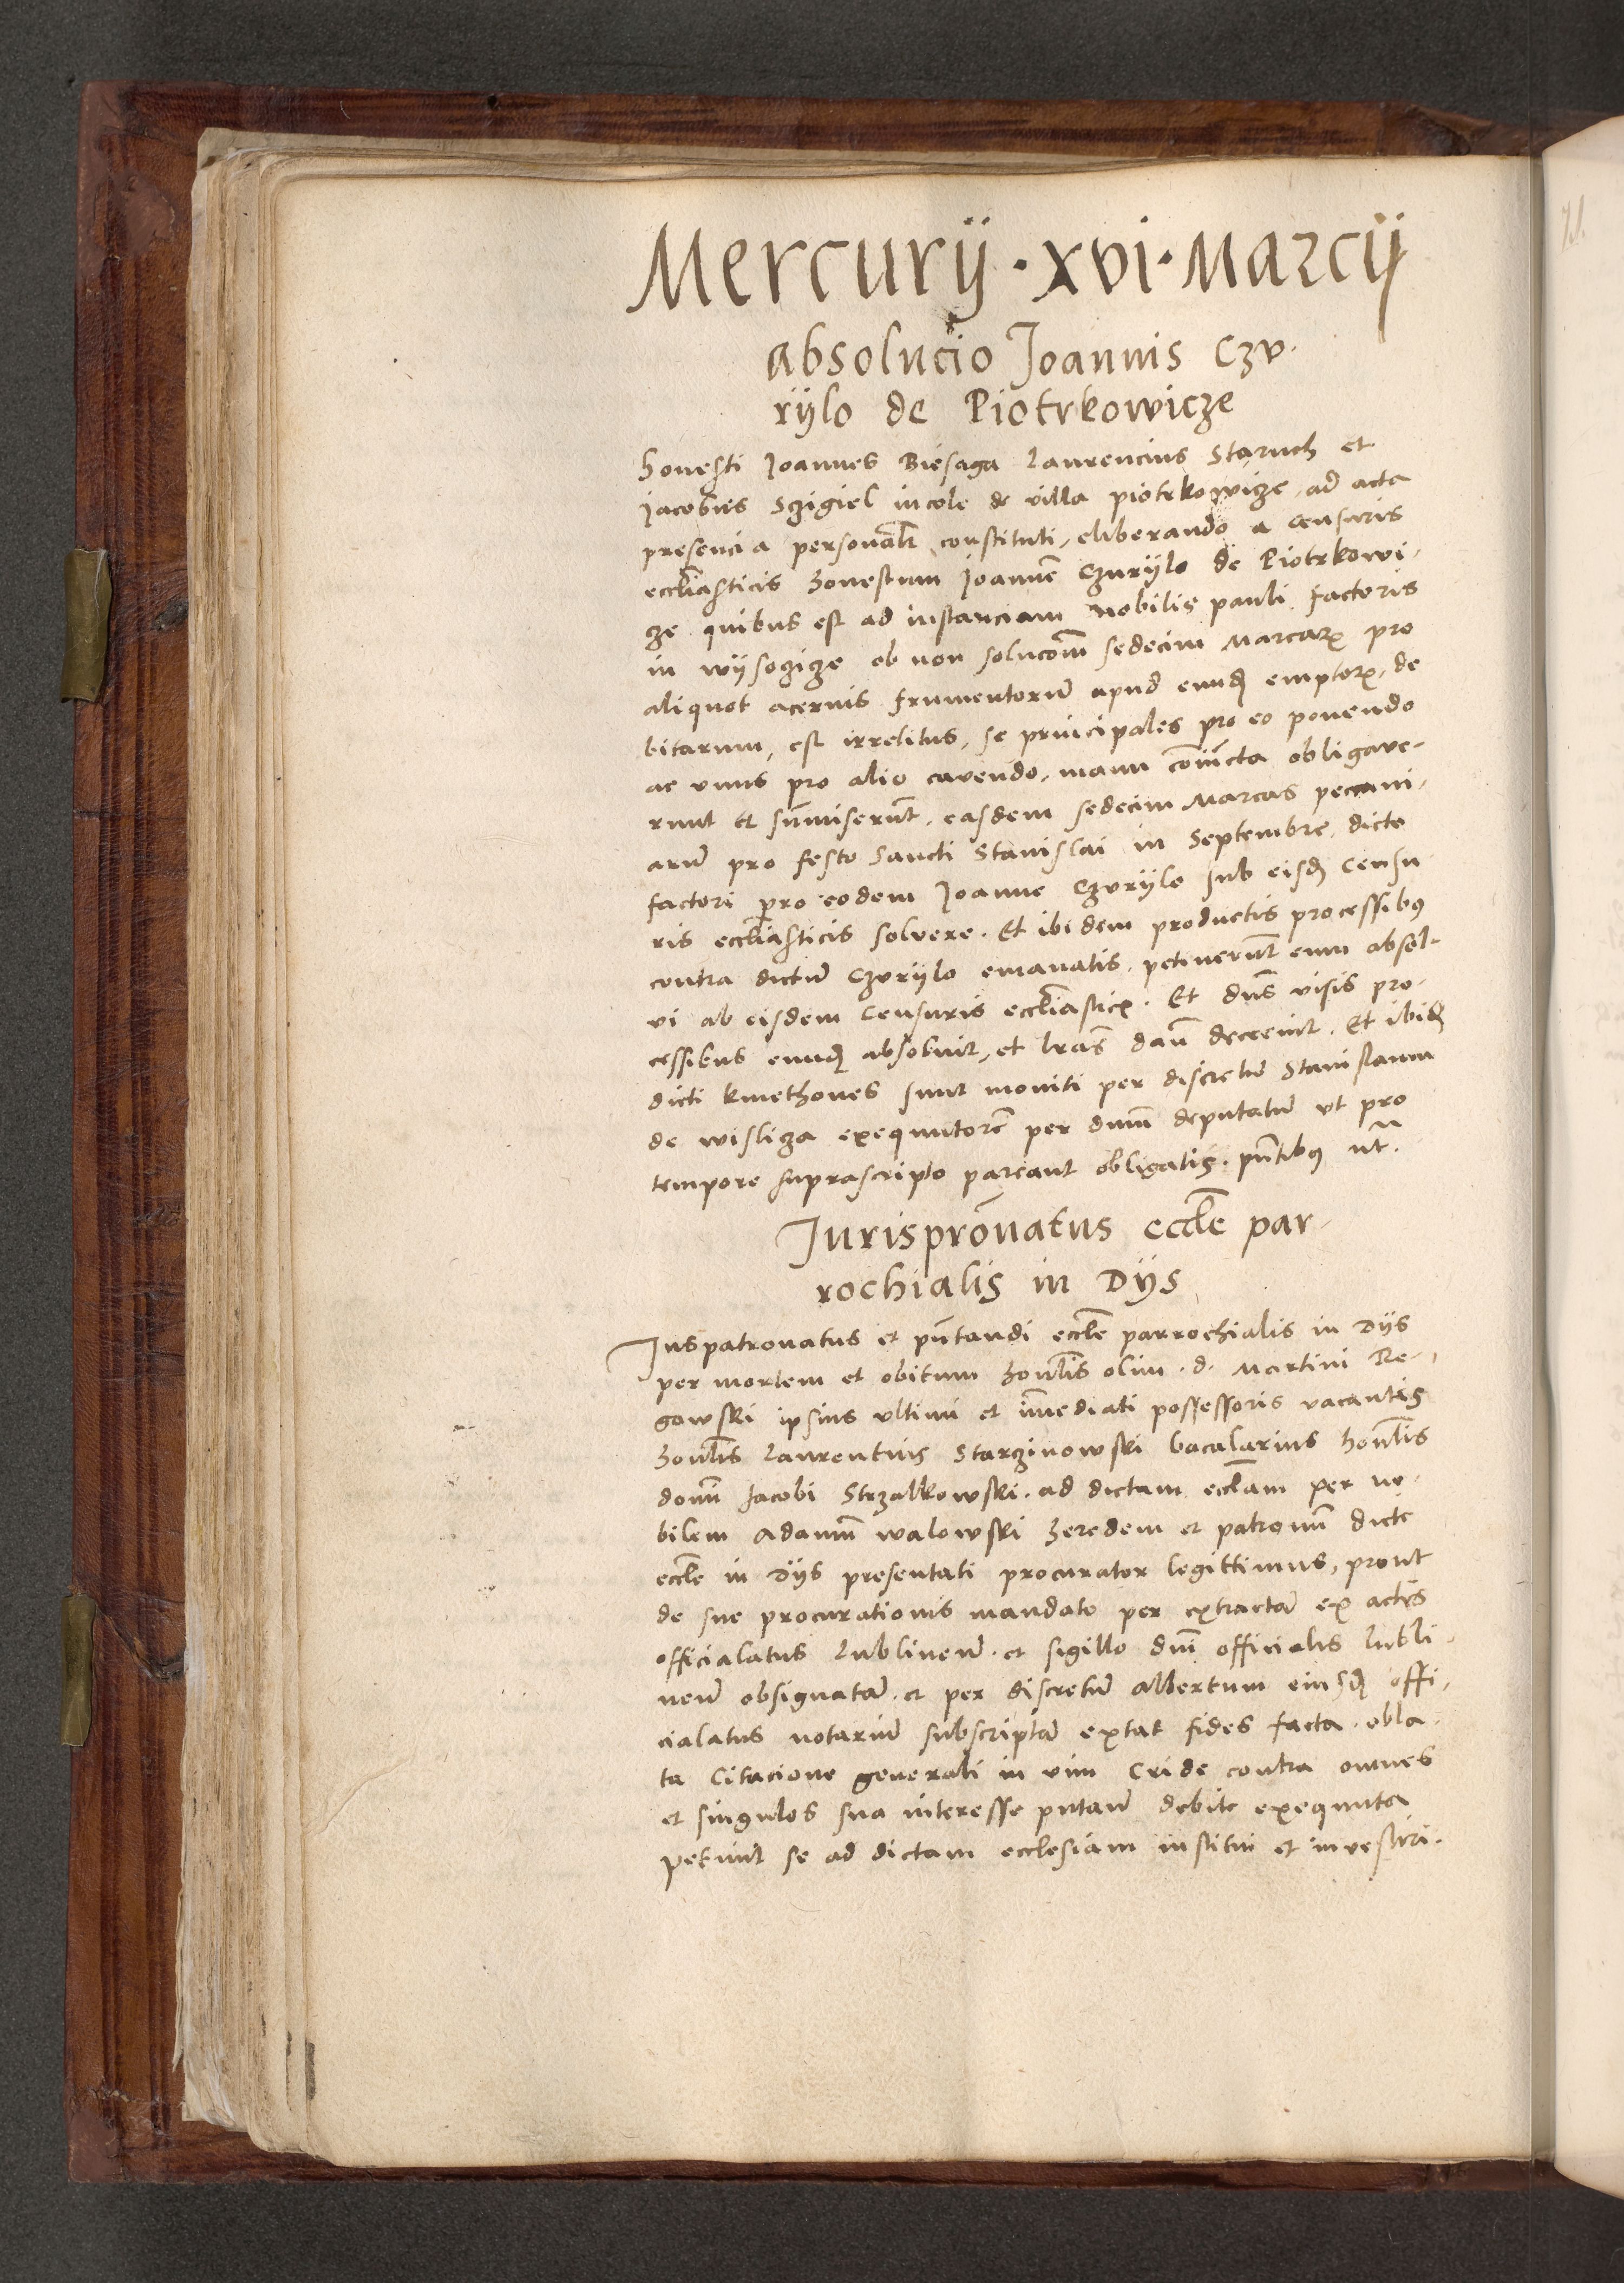 Mercurij · xvi · Marcij
absolucio Joannis Czv-
rijlo de Piotrkowicze
Honesti Joannes Biesaga Laurencius Staruch et
Jacobus Szigiel incole de villa piotrkowicze, ad acta
presencia personalr constituti, eliberando a censuris
eccliasticis honestum Joannē Czurijlo de Piotrkowi-
cze quibus est ad instanciam Nobilis pauli factoris
in wijsoczicze ob non solucōm sedecim Marcarꝝ pro
aliquot acervis frumentorū apud eundꝫ emptorꝝ, de
bitarum, est irretitus, se principales pro eo ponendo
ac vnus pro alio cavendo, manu cōiūcta obligave-
runt et sūmiserūt, easdem sedecim Marcas peccuni-
arū pro festo Sancti Stanislai in Septembre, dicto
factori pro eodem Joanne Czvrijlo sub eisdꝫ Censu
ris eccliasticis solvere. Et ibidem productis processibꝰ
contra dictū Czvrijlo emanatis, petiuerūt eum absol-
vi ab eisdem Censuris eccliasticꝭ. Et dns visis pro-
cessibus eundꝫ absoluit, et lras dañ decreuit. Et ibidꝫ
dicti kmethones sunt moniti per discretū Stanislaum
de wislicza exequutorē per dnm deputatū vt pro
tempore suprascripto pareant obligatis. pntibꝰ ut.
Jurisprōnatus eccle par-
rochialis in Dijs
Juspatronatus et pntandi eccle parrochialis in Dijs
per mortem et obitum honlis olim . d. Martini Re-
gowski ipsius vltimi et īmediati possessoris vacantis
honlis Laurentius Starzinowski bacalarius honlis
domi Jacobi Strzalkowski. ad dictam ecclam per no-
bilem Adamū walowski heredem et patronū dicte
eccle in Dijs presentati procurator legittimus, prout
de sue procurationis mandato per extractā ex actis
officialatus Lublineñ. et sigillo dni officialis lubli-
neñ obsignatā. et per discretū Albertum eiusdꝫ offi-
cialatus notariū subscriptā extat fides facta. obla-
ta Citacione generali in vim Cride contra omnes
et singulos sua interesse putañ debite exequuta
petiuit se ad dictam ecclesiam institui et investiri.